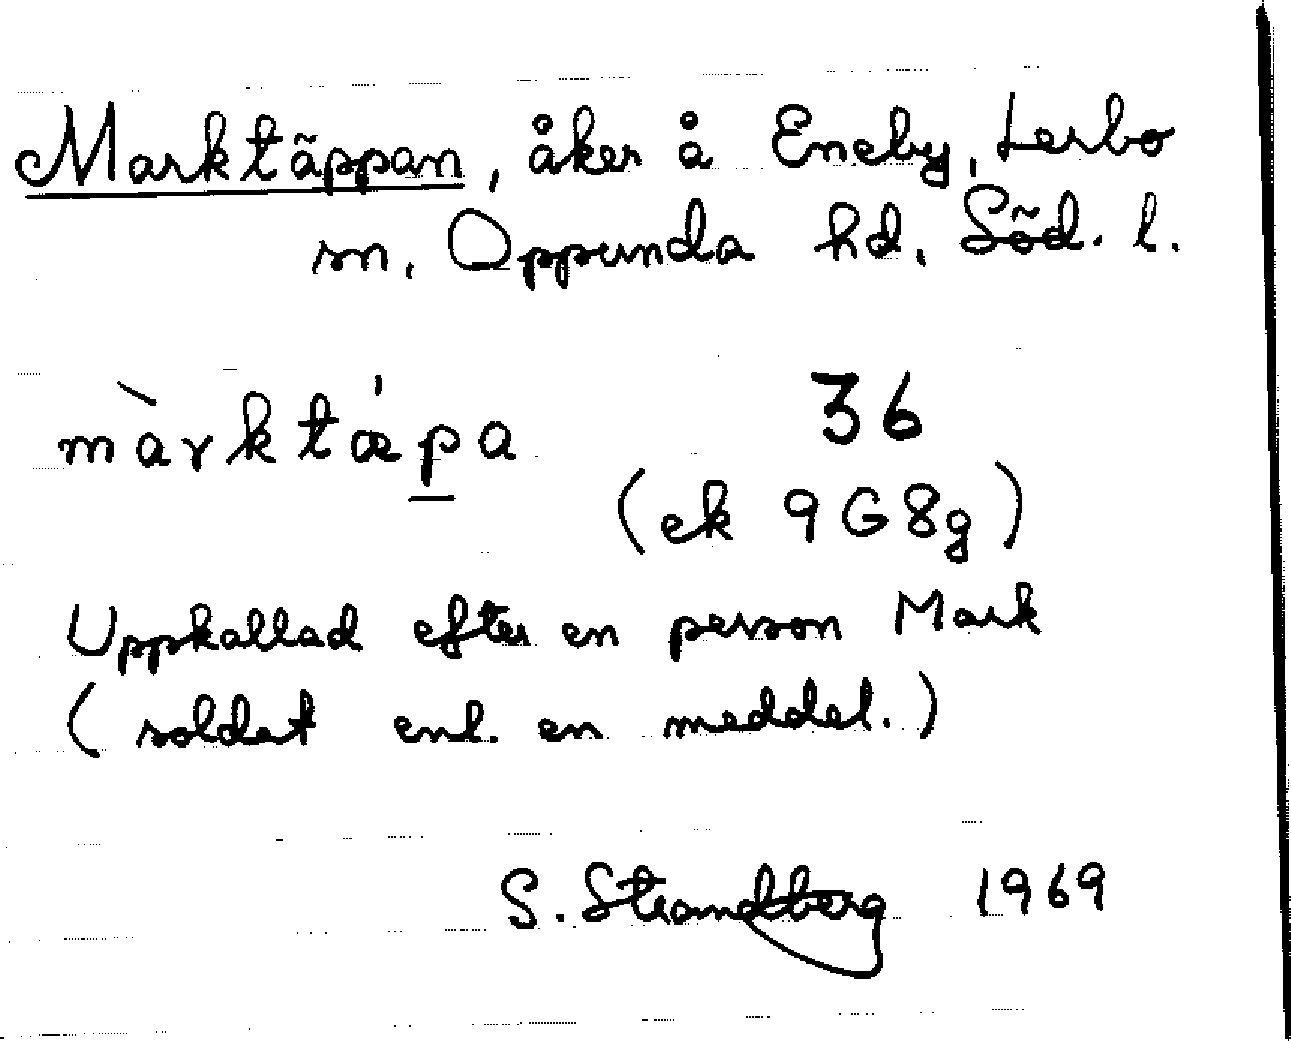 Marktäppan, åker å Eneby, Lerbo
sn, Oppunda hd, Söd. l.
màrktǽpa 36
(ek 9G8g)
Uppkallad efter en person Mark
(soldat enl. en meddel.)
S. Strandberg 1969